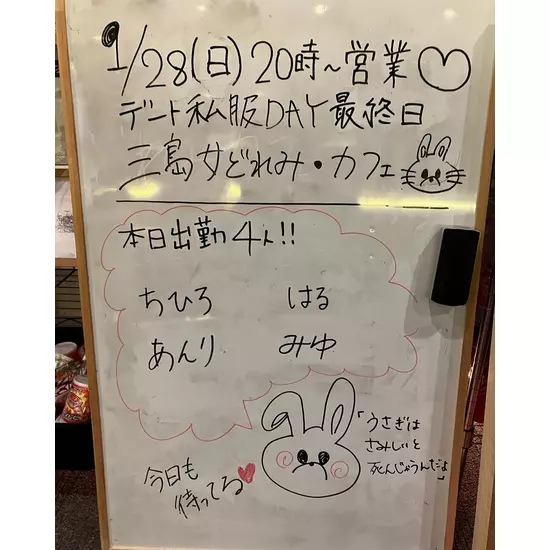 1/28(日)20時~営業♡
デート私服DAY最終日
三島女どれみ・カフェ
本日出勤4人!!
ちひろ はる
あんり みゆ
「うさぎは
さみしいと
死んじゃうんだよ」
今日も
待ってる♥